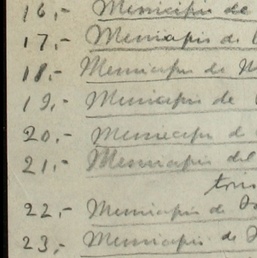 16,- Municipio de
17,- Municipio de
18,- Municipio de
19,- Municipio de
20,- Municipio de
21,- Municipio del
22,- Municipio de
23,- Municipio de